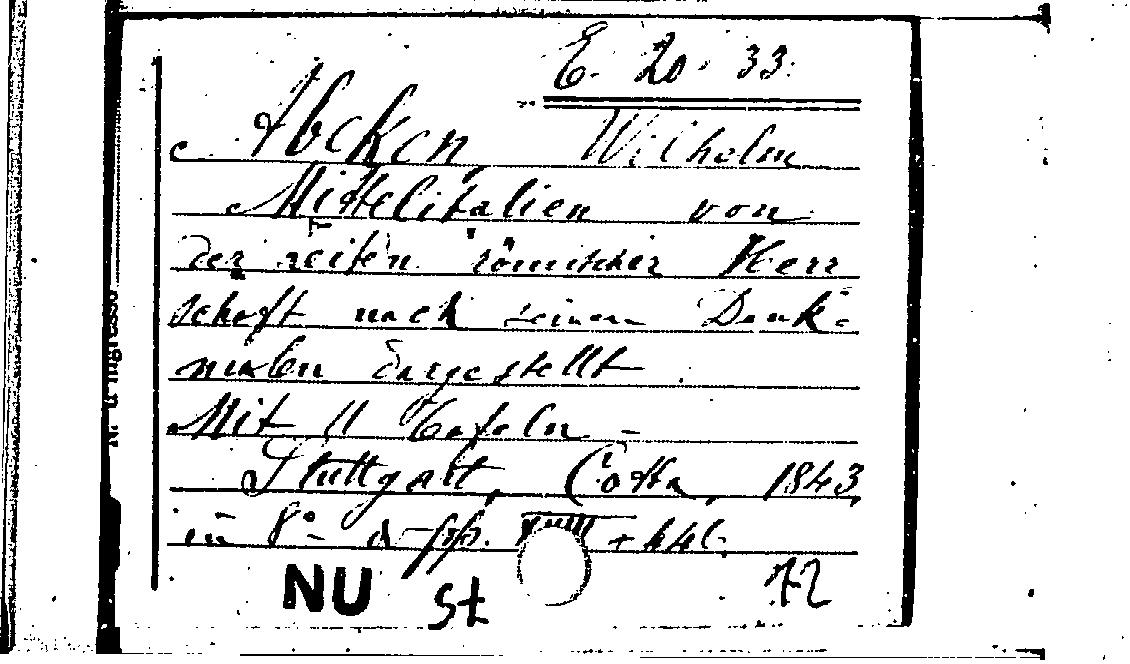 E. 20. 33.
Abeken, Wilhelm
Mittelitalien von
der zeiten römischer Herr
schaft nach seinen Denk-
malen dargestellt
Mit 11 Tafeln -
Stuttgart, Cotta, 1843,
in 8° pp.
NU St 72
N. d'ingresso